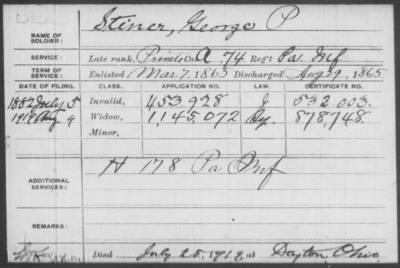 Stiner, George P
NAME OF SOLDIER:
SERVICE: Late rank, Private Co. A. 74 Reg't Pa. Inf.
TERM OF SERVICE: Enlisted Mar 7, 1865 Discharged Aug 29, 1865
DATE OF FILING. CLASS. APPLICATION NO. LAW. CERTIFICATE NO.
1882 July 5 Invalid, 453,928 J 532,003.
1919 Aug. 9 Widow, 1,145,072 Gy. 878,748
Minor,
H 178 Pa Inf
ADDITIONAL SERVICES:
REMARKS:
Died July 25, 1919, at Dayton Ohio